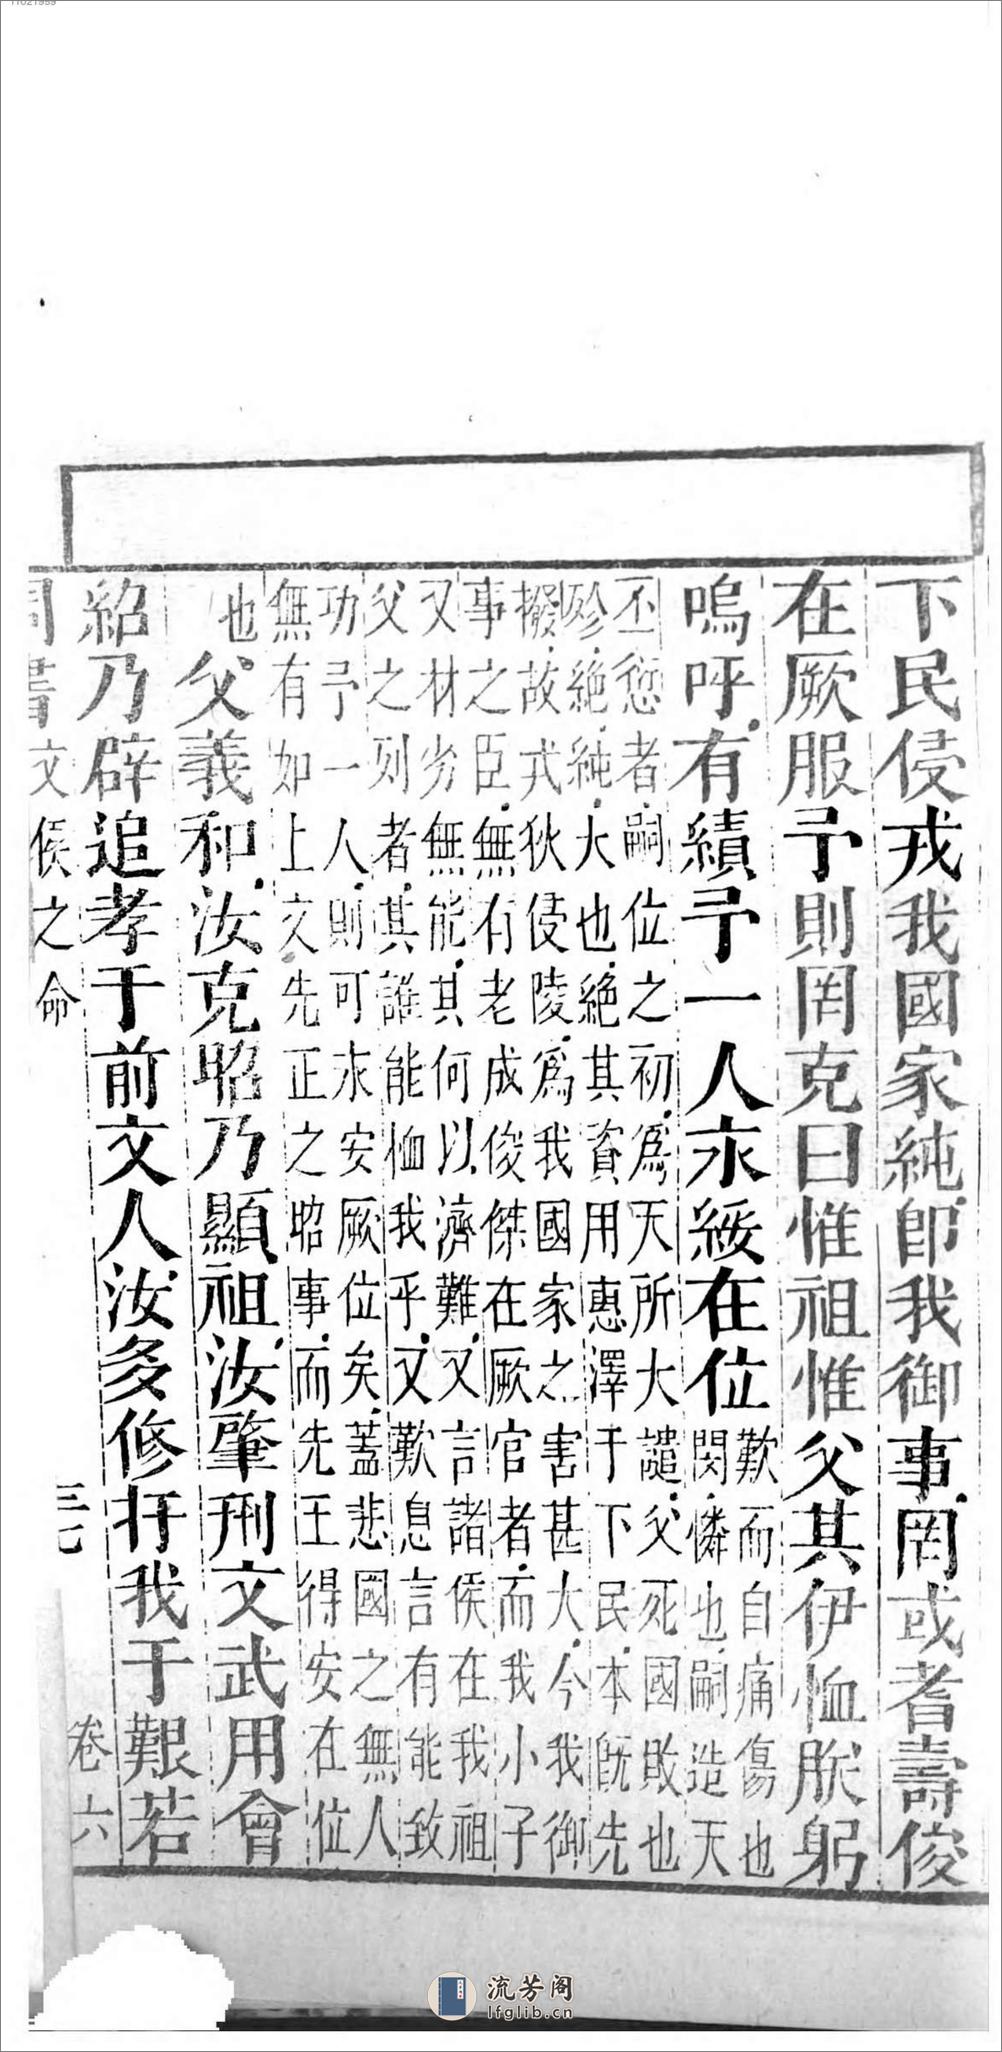 11021959
下民侵戎我國家純卽我御事罔或耆壽俊
在厥服予則罔克曰惟祖惟父其伊恤朕躬
嗚呼有績予一人永綏在位歎而自痛傷也
閔憐也嗣造天
丕愆者嗣位之初爲天所大譴父死國敗也
殄絶純大也絶其資用惠澤于下民本旣先
撥故戎狄侵陵爲我國家之害甚大今我御
事之臣無有老成俊傑在厥官者而我小子
又材劣無能其何以濟難又言諸侯在我祖
父之列者其誰能恤我乎又歎息言有能致
功予一人則可永安厥位矣蓋悲國之無人
無有如上文先正之昭事而先王得安在位
也
父義和汝克昭乃顯祖汝肇刑文武用會
紹乃辟追孝于前文人汝多修扞我于艱若
周書文侯之命
卷六
流芳阁
lfglib.cn